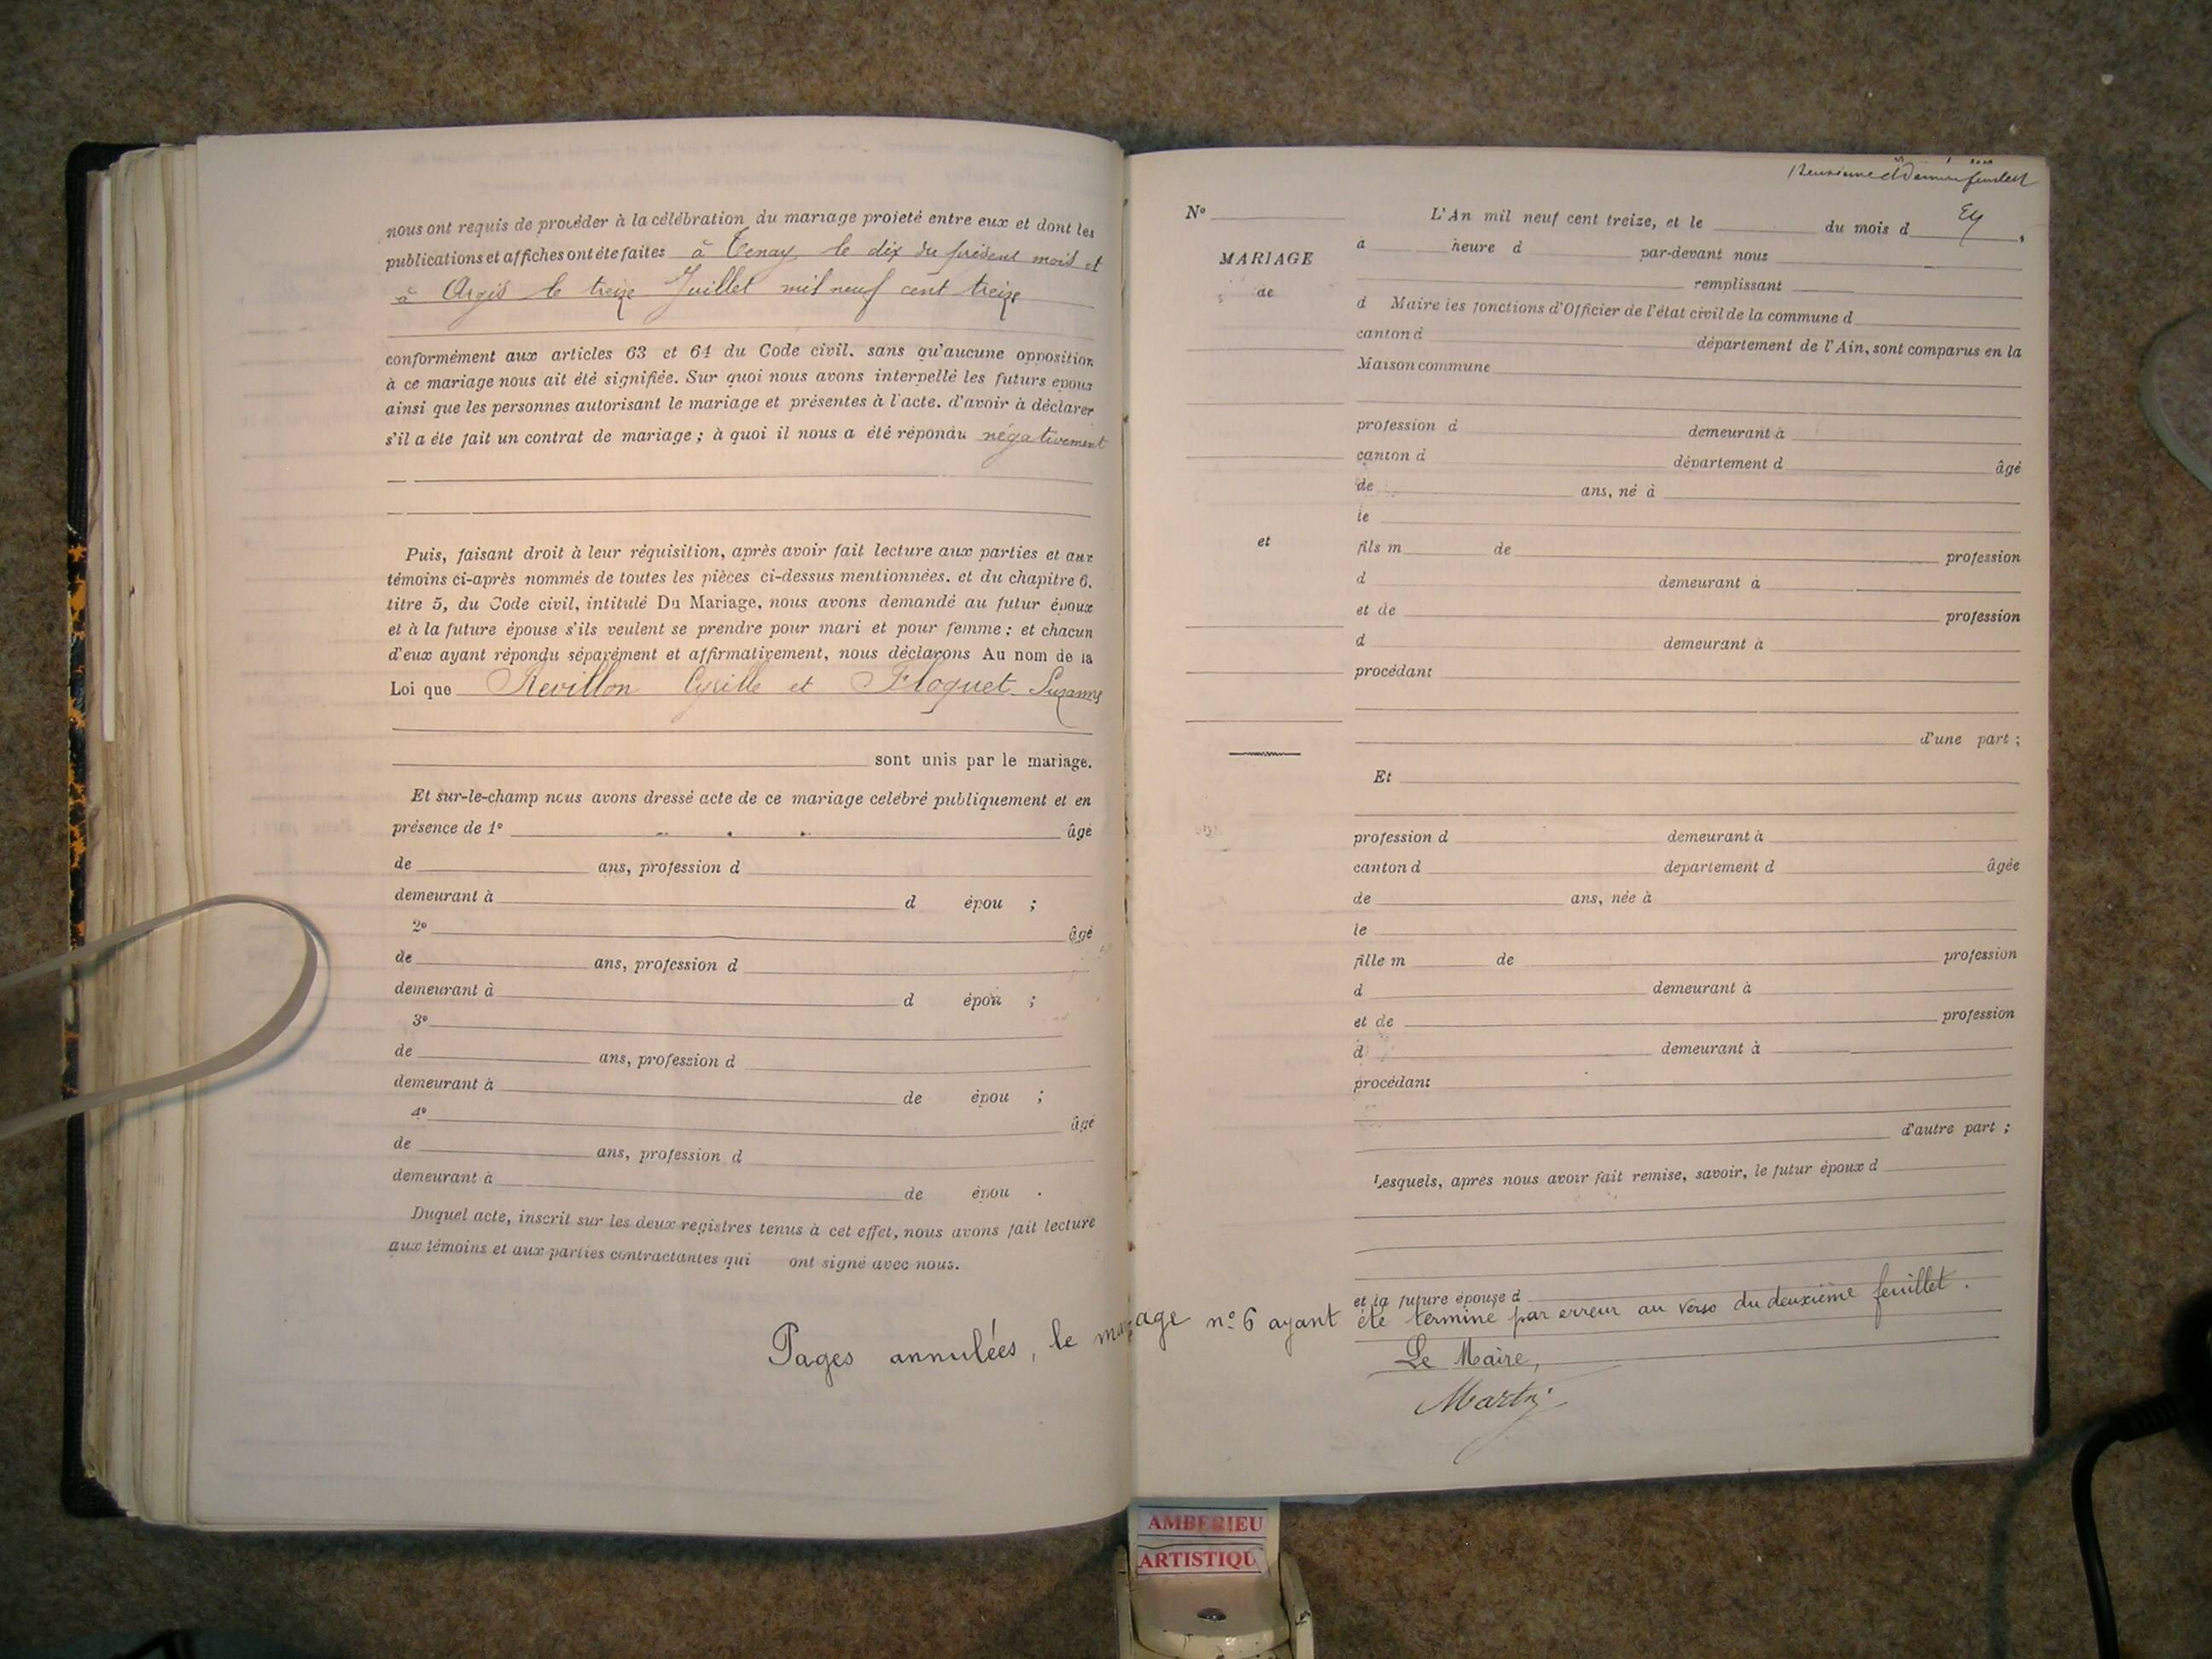 nous ont requis de procéder à la célébration du mariage projeté entre eux et dont les
publications et affiches ont été faites à Tenay, le dix du présent mois et
à Argis le treize Juillet mil neuf cent treize
conformément aux articles 63 et 64 du Code civil, sans qu'aucune opposition
à ce mariage nous ait été signifiée. Sur quoi nous avons interpellé les futurs époux
ainsi que les personnes autorisant le mariage et présentes à l'acte, d'avoir à déclarer
s'il a été fait un contrat de mariage ; à quoi il nous a été répondu négativement
Puis, faisant droit à leur réquisition, après avoir fait lecture aux parties et aux
témoins ci-après nommés de toutes les pièces ci-dessus mentionnées, et du chapitre 6,
titre 5, du Code civil, intitulé Du Mariage, nous avons demandé au futur époux
et à la future épouse s'ils veulent se prendre pour mari et pour femme ; et chacun
d'eux ayant répondu séparément et affirmativement, nous déclarons Au nom de la
Loi que Revillon Cyrille et Floquet Suzanne
sont unis par le mariage.
Et sur-le-champ nous avons dressé acte de ce mariage célébré publiquement et en
présence de 1° âgé
de ans, profession d
demeurant à d épou ;
2° âgé
de ans, profession d
demeurant à d épou ;
3°
de ans, profession d
demeurant à de épou ;
4° âgé
de ans, profession d
demeurant à de épou .
Duquel acte, inscrit sur les deux registres tenus à cet effet, nous avons fait lecture
aux témoins et aux parties contractantes qui ont signé avec nous.
Pages annulées, le mariage n° 6 ayant été terminé par erreur au verso du deuxième feuillet.
Le Maire,
feuillet
N°
MARIAGE
de
et
L'An mil neuf cent treize, et le du mois d
à heure d par-devant nous
remplissant
d Maire les fonctions d'Officier de l'état civil de la commune d
canton d département de l'Ain, sont comparus en la
Maison commune
profession d demeurant à
canton d département d âgé
de ans, né à
le
fils m de profession
d demeurant à
et de profession
d demeurant à
procédant
d'une part ;
Et
profession d demeurant à
canton d département d âgée
de ans, née à
le
fille m de profession
d demeurant à
et de profession
d demeurant à
procédant
d'autre part ;
Lesquels, après nous avoir fait remise, savoir, le futur époux d
et la future épouse d
AMBERIEU
ARTISTIQU